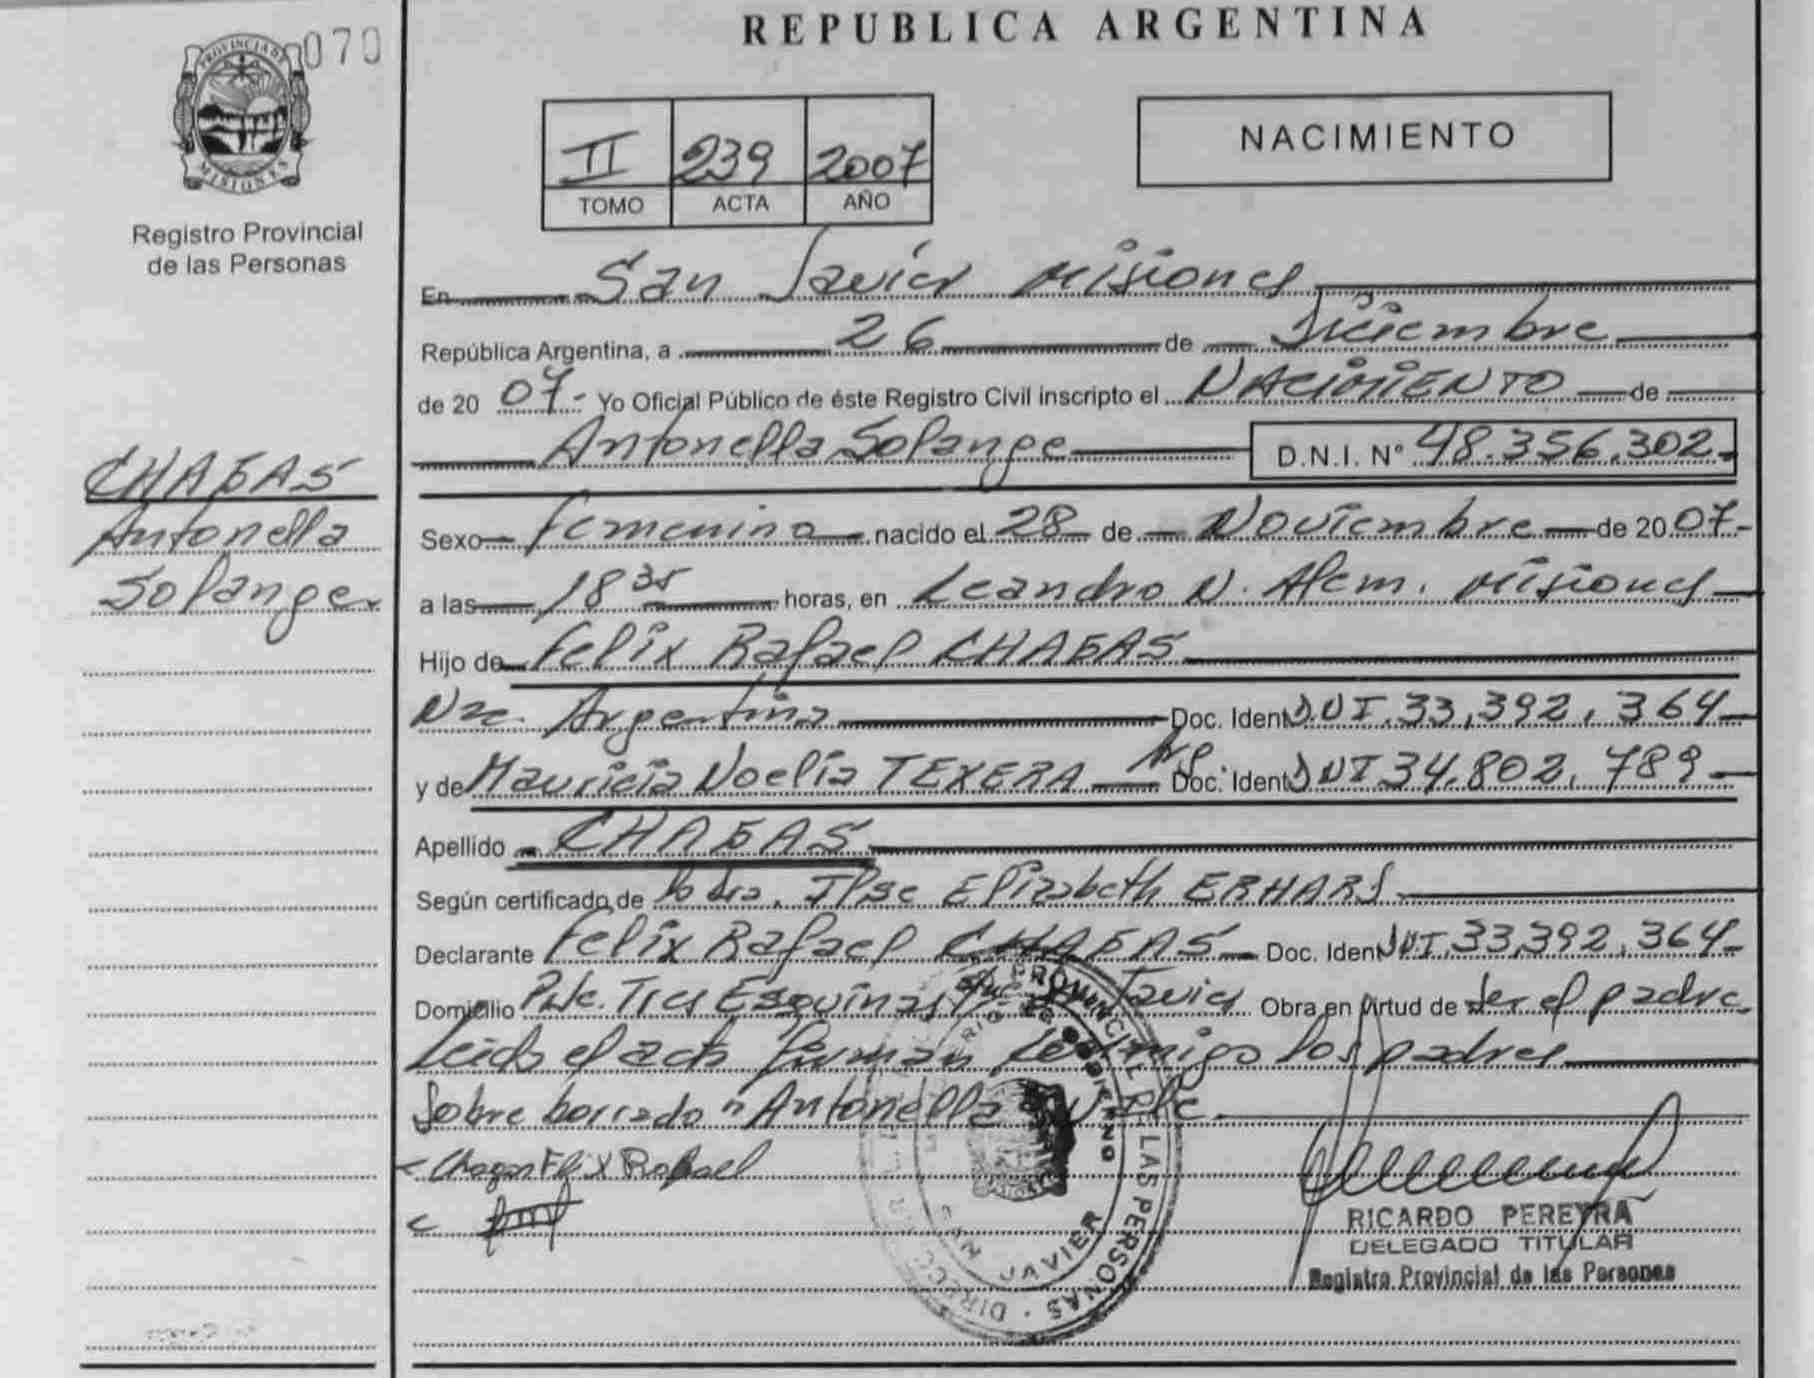 REPUBLICA ARGENTINA
070
PROVINCIA DE MISIONES
Registro Provincial
de las Personas
II 239 2007
TOMO ACTA AÑO
NACIMIENTO
En San Javier Misiones
República Argentina, a 26 de Diciembre
de 20 07.- Yo Oficial Público de éste Registro Civil inscripto el NACIMIENTO de
Antonella Solange D.N.I. N° 48.356.302.-
CHAGAS
Antonella
Solange
Sexo Femenino nacido el 28 de Noviembre de 20 07.-
a las 18 35 horas, en Leandro N. Alem. Misiones
Hijo de Felix Rafael CHAGAS
Nac. Argentina Doc. Ident DNI.33,392,364
y de Mauricia Noelia TEXERA Doc. Ident DNI 34.802.789
Apellido CHAGAS
Según certificado de la dra. Ilse Elizabeth ERHARD
Declarante Felix Rafael CHAGAS Doc. Ident DNI.33,392,364
Domicilio Pje. Tres Esquinas Javier Obra en virtud de ser el padre
Leida el acta firman conmigo los padres
Sobre borrado "Antonella" Vale
Chagas Felix Rafael
RICARDO PEREYRA
DELEGADO TITULAR
Registro Provincial de las Personas
PROVINCIAL DE LAS PERSONAS
SAN JAVIER